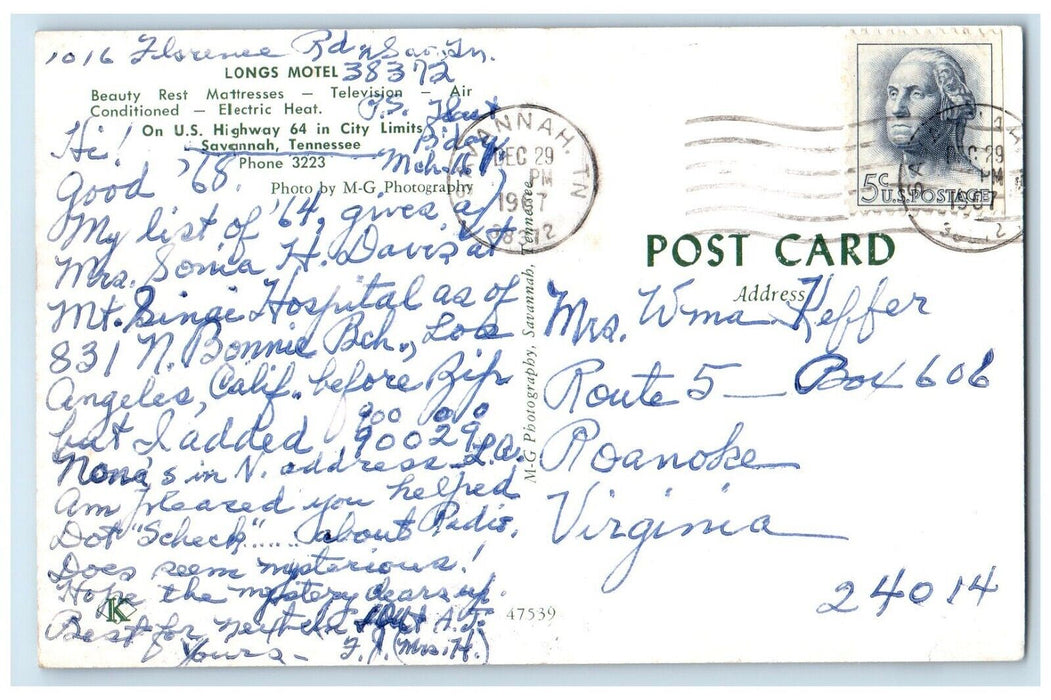 1016 Florence Rd, Sav. Tn.
38372
LONGS MOTEL
Beauty Rest Mattresses — Television — Air
Conditioned — Electric Heat.
On U.S. Highway 64 in City Limits
Savannah, Tennessee
Phone 3223
Photo by M-G Photography
P.S.
Hi!
Good '68.
My list of '64, gives
Mrs. Sonia H. Davis at
Mt. Sinai Hospital as of
831 N. Bonnie Bch., Los
Angeles, Calif. before Zip
but I added 90029
Nona's in N. address L.A.
Am pleased you helped
Dot "Scheck"..... about Radio.
Does seem mysterious!
Hope the mystery clears up.
Best for
Yours— F.J. (Mrs. H.)
M-G Photography, Savannah, Tennessee
K
47539
SAVANNAH, TN
DEC 29
PM
1967
38372
5c U.S. POSTAGE
POST CARD
Address
Mrs. Wma Keffer
Route 5 — Box 606
Roanoke
Virginia
24014